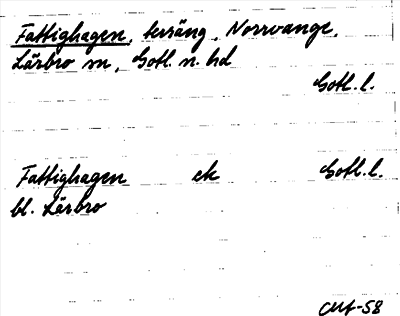 Fattighagen, terräng, Norrvange,
Lärbro sn, Gotl. n. hd
Gotl. l.
Fattighagen ek Gotl. l.
bl. Lärbro
-58